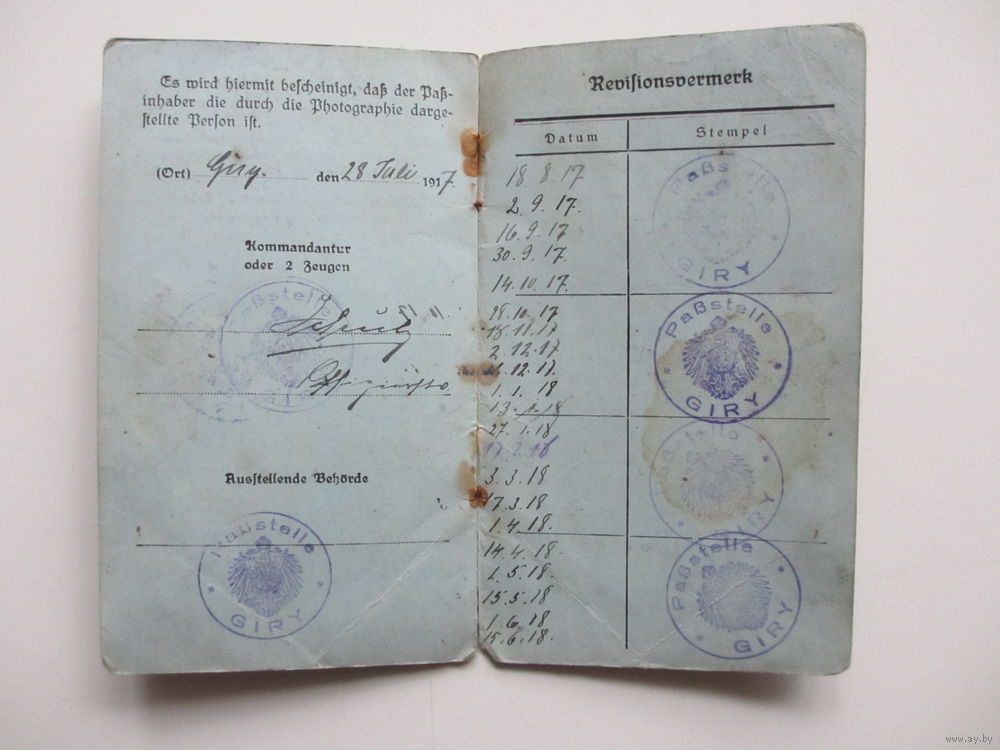 Es wird hiermit bescheinigt, daß der Paß-
inhaber die durch die Photographie darge-
stellte Person ist.
(Ort) Giry. den 28 Juli 1917.
Kommandantur
oder 2 Zeugen
Paßstelle
Ausstellende Behörde
Paßstelle
GIRY
Revisionsvermerk
Datum Stempel
18.8.17
2.9.17.
16.9.17
30.9.17.
14.10.17.
28.10.17
18.11.17
2.12.17
12.17.
1.1.18
13.1.18
27.1.18
17.2.18
3.3.18
17.3.18
1.4.18.
14.4.18.
1.5.18.
15.5.18
1.6.18
15.6.18.
Paßstelle
GIRY
Paßstelle
GIRY
Paßstelle
GIRY
Paßstelle
GIRY
www.ay.by